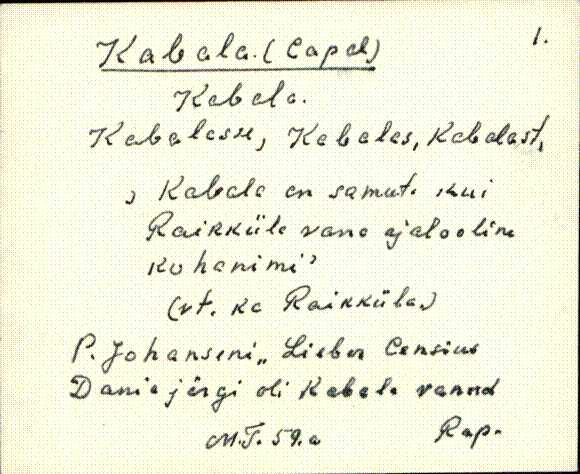 1.
Kabala. (Capal)
Kabala.
Kabalasse, Kabalas, Kabalast,
, Kabala on samut. kui
Raikküla vana ajalooline
kohanimi,
(vt. ka Raikküla.)
P. Johanseni „ Lieber Census
Daniae järgi oli Kabala vanad
M.T. 59.a Rap.